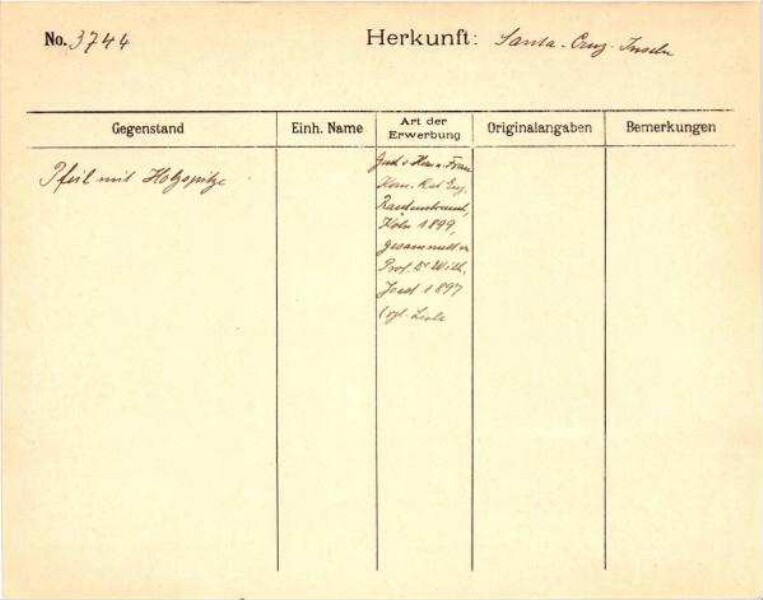 No. 3744
Herkunft: Santa-Cruz-Inseln
Gegenstand
Einh. Name
Art der
Erwerbung
Originalangaben
Bemerkungen
Pfeil mit Holzspitze
Frau
Kom. Rat Eug.
Rautenstrauch,
Köln 1899,
gesammelt v.
Prof. Dr Wilh.
Joest 1897